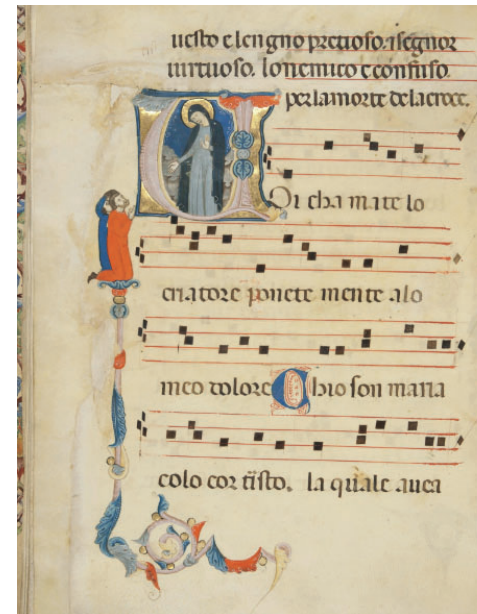 uesto e lengno pretioso. isegnor
uirtuoso. lonemico e confuso.
per la morte de la croce.
Oi cha mate lo
criatore ponete mente alo
meo dolore Chio son maria
colo cor tristo. la quale auea